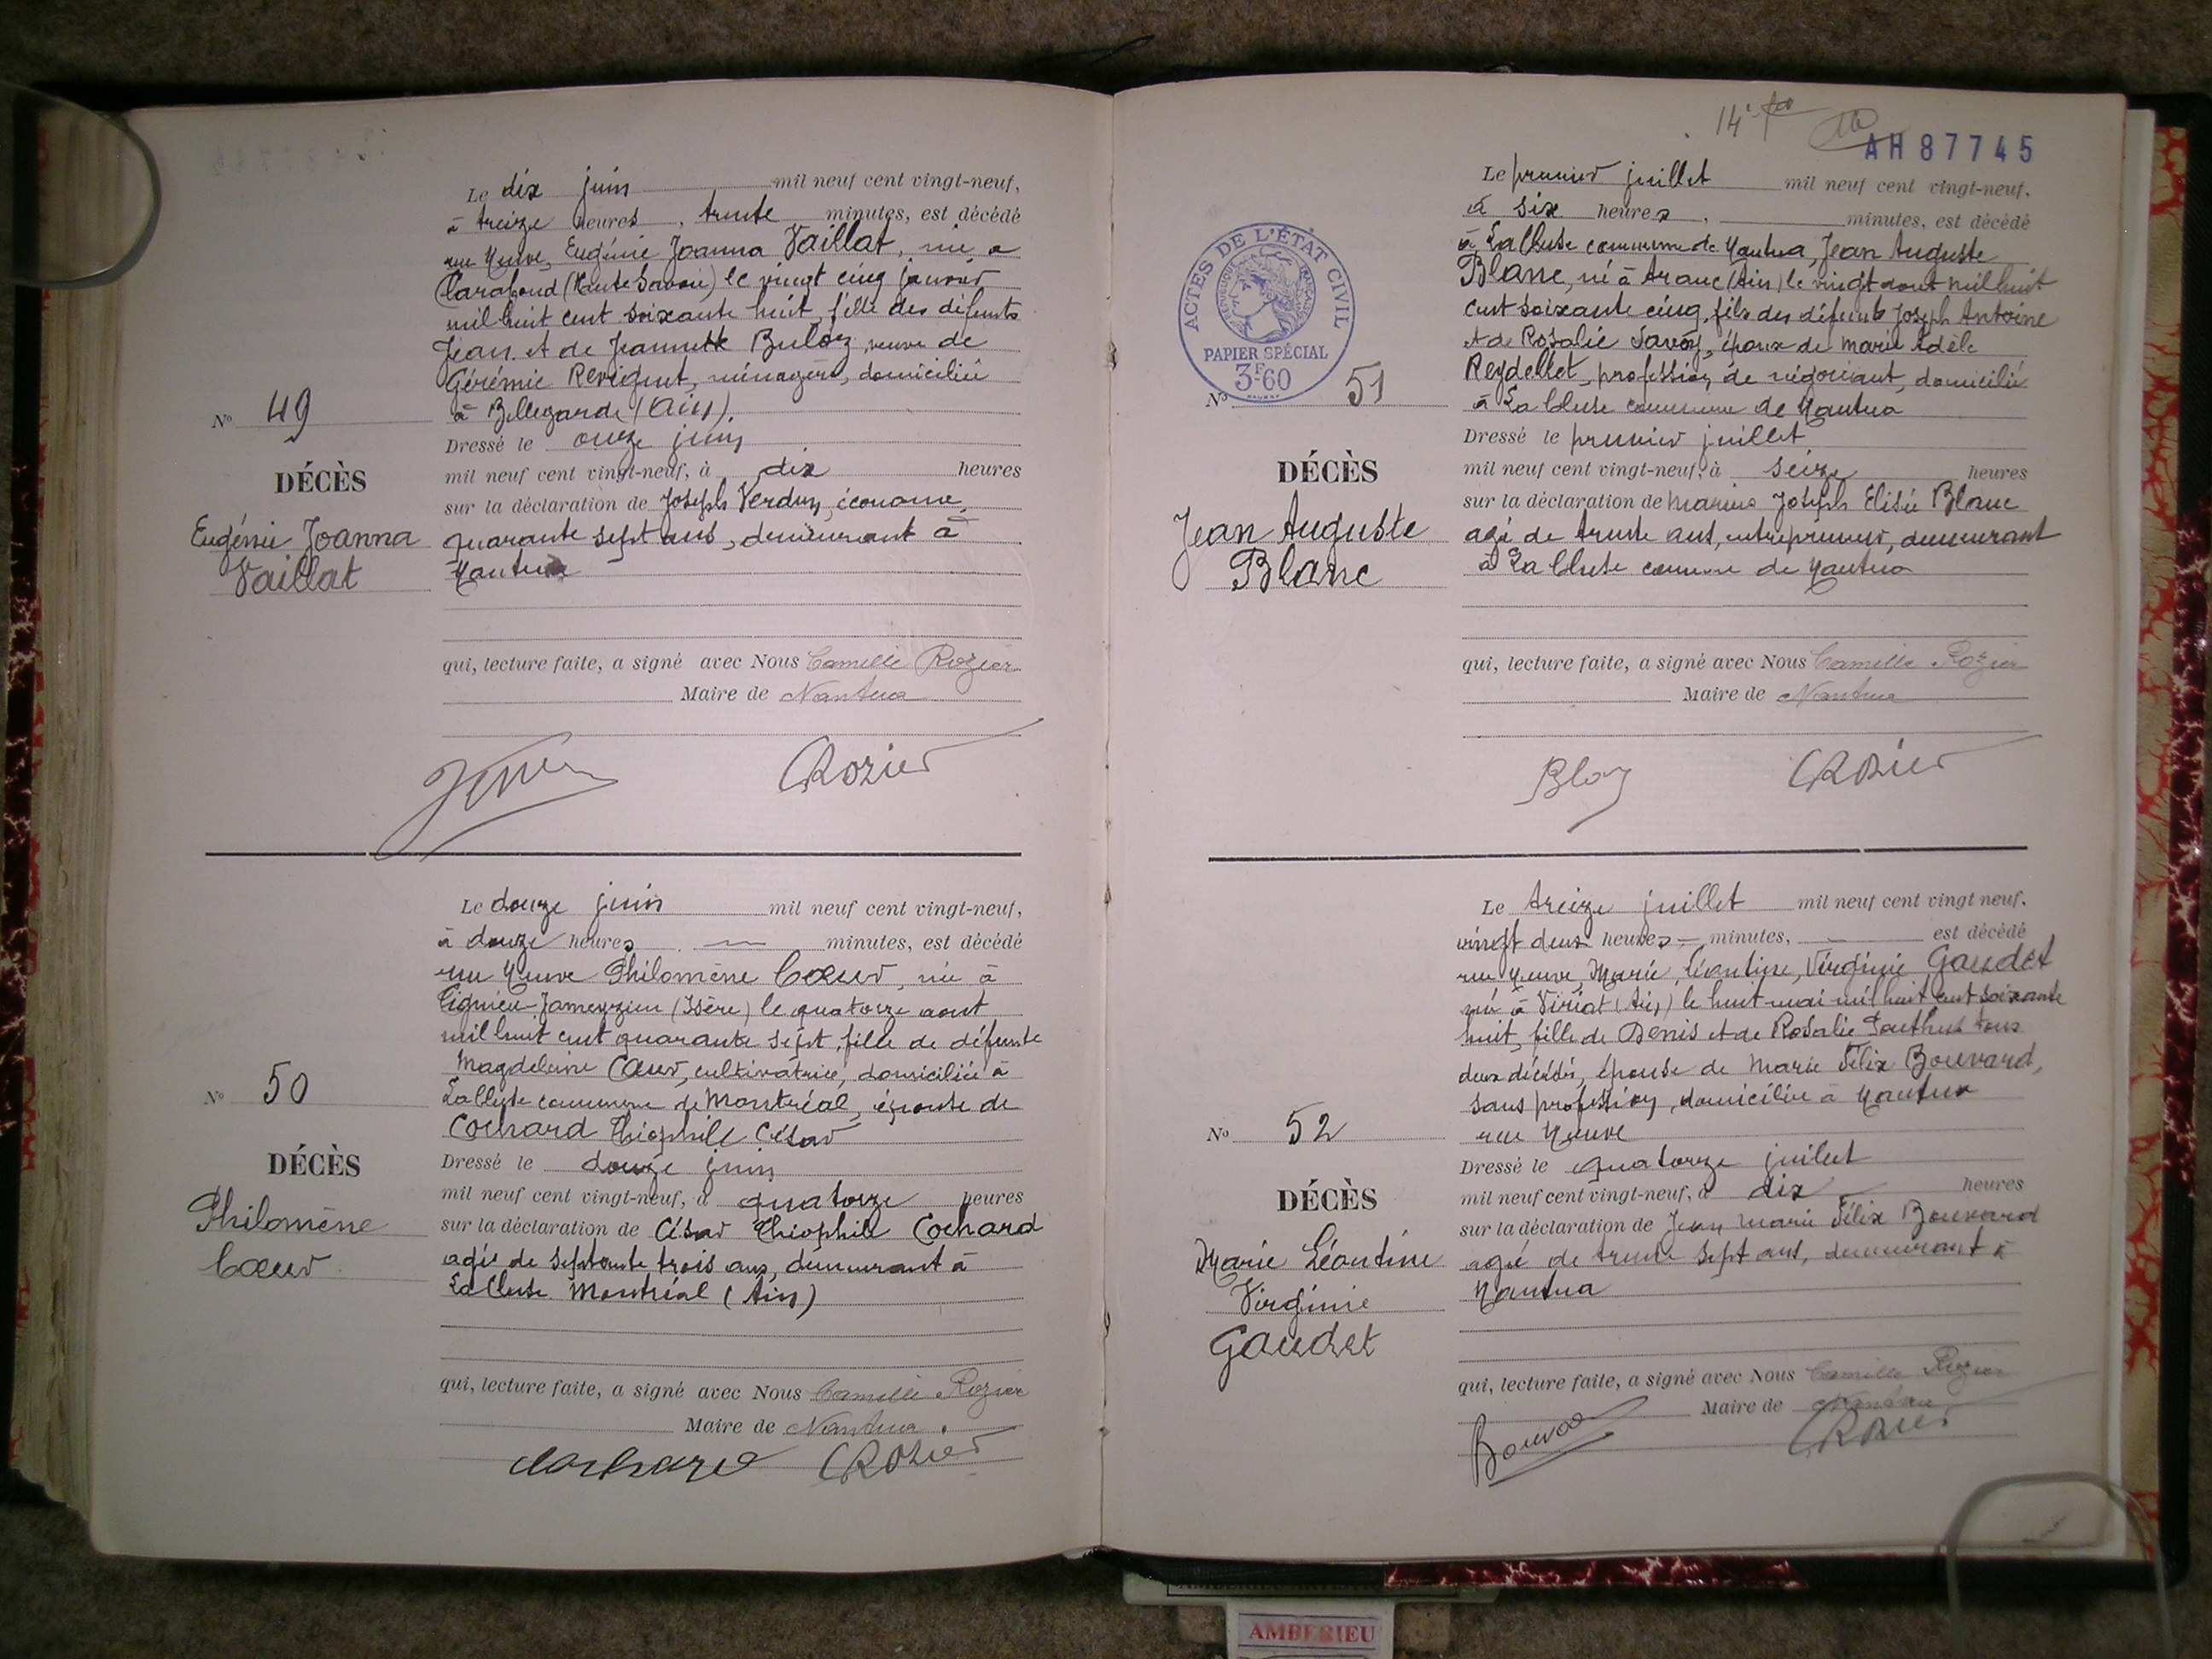 Le dix juin mil neuf cent vingt-neuf,
à treize heures, trente minutes, est décédé
rue Neuve, Eugénie Joanna Vaillat, née a
Clarafond (Haute Savoie) le vingt cinq janvier
mil huit cent soixante huit, fille des défunts
Jean et de Jeannette Buloz, veuve de
Gérémie, ménagère, domiciliée
à Bellegarde (Ain).
Nº 49
Dressé le onze juin
mil neuf cent vingt-neuf, à dix heures
DÉCÈS
sur la déclaration de Joseph Verdun, économe,
Eugénie Joanna
Vaillat
quarante sept ans, demeurant à
Nantua
qui, lecture faite, a signé avec Nous Camille Rozier
Maire de Nantua
CRozier
Le douze juin mil neuf cent vingt-neuf,
à douze heures minutes, est décédé
rue Neuve Philomène Cœur, née à
Tignieu-Jameyzieu (Isère) le quatorze aout
mil huit cent quarante sept, fille de défunte
Magdeleine Cœur, cultivatrice, domiciliée à
La Cluse commune de Montréal, épouse de
Cochard Théophile César
Nº 50
DÉCÈS
Philomène
Cœur
Dressé le douze juin
mil neuf cent vingt-neuf, à quatorze heures
sur la déclaration de César Théophile Cochard
agé de septante trois ans, demeurant à
La Cluse Montréal (Ain)
qui, lecture faite, a signé avec Nous Camille Rozier
Maire de Nantua
Cochard CRozier
14e
AH 87745
Le premier juillet mil neuf cent vingt-neuf,
à six heures, minutes, est décédé
à La Cluse commune de Nantua, Jean Auguste
Blanc, né à Aranc (Ain) le vingt aout mil huit
cent soixante cinq, fils des défunts Joseph Antoine
et de Rosalie Savoy, époux de Marie Adèle
Reydellet, profession de négociant, domicilié
à La Cluse commune de Nantua
ACTES DE L'ÉTAT CIVIL
RÉPUBLIQUE FRANÇAISE
PAPIER SPÉCIAL
3F60
Nº 51
DÉCÈS
Jean Auguste
Blanc
Dressé le premier juillet
mil neuf cent vingt-neuf, à seize heures
sur la déclaration de Marius Joseph Elisée Blanc
agé de trente ans, entrepreneur, demeurant
à La Cluse commune de Nantua
qui, lecture faite, a signé avec Nous Camille Rozier
Maire de Nantua
CRozier
Le treize juillet mil neuf cent vingt neuf,
vingt deux heures minutes, est décédé
rue Neuve, Marie, Léontine, Virginie Gaudet
née à Viriat (Ain) le huit mai mil huit cent soixante
huit, fille de Denis et de Rosalie tous
deux décédés, épouse de Marie Félix Bouvard,
sans profession, domiciliée à Nantua
rue Neuve
Nº 52
DÉCÈS
Marie Léontine
Virginie
Gaudet
Dressé le quatorze juillet
mil neuf cent vingt-neuf, à dix heures
sur la déclaration de Jean Marie Félix Bouvard
agé de trente sept ans, demeurant à
Nantua
qui, lecture faite, a signé avec Nous Camille Rozier
Maire de Nantua
Bouvard CRozier
AMBERIEU